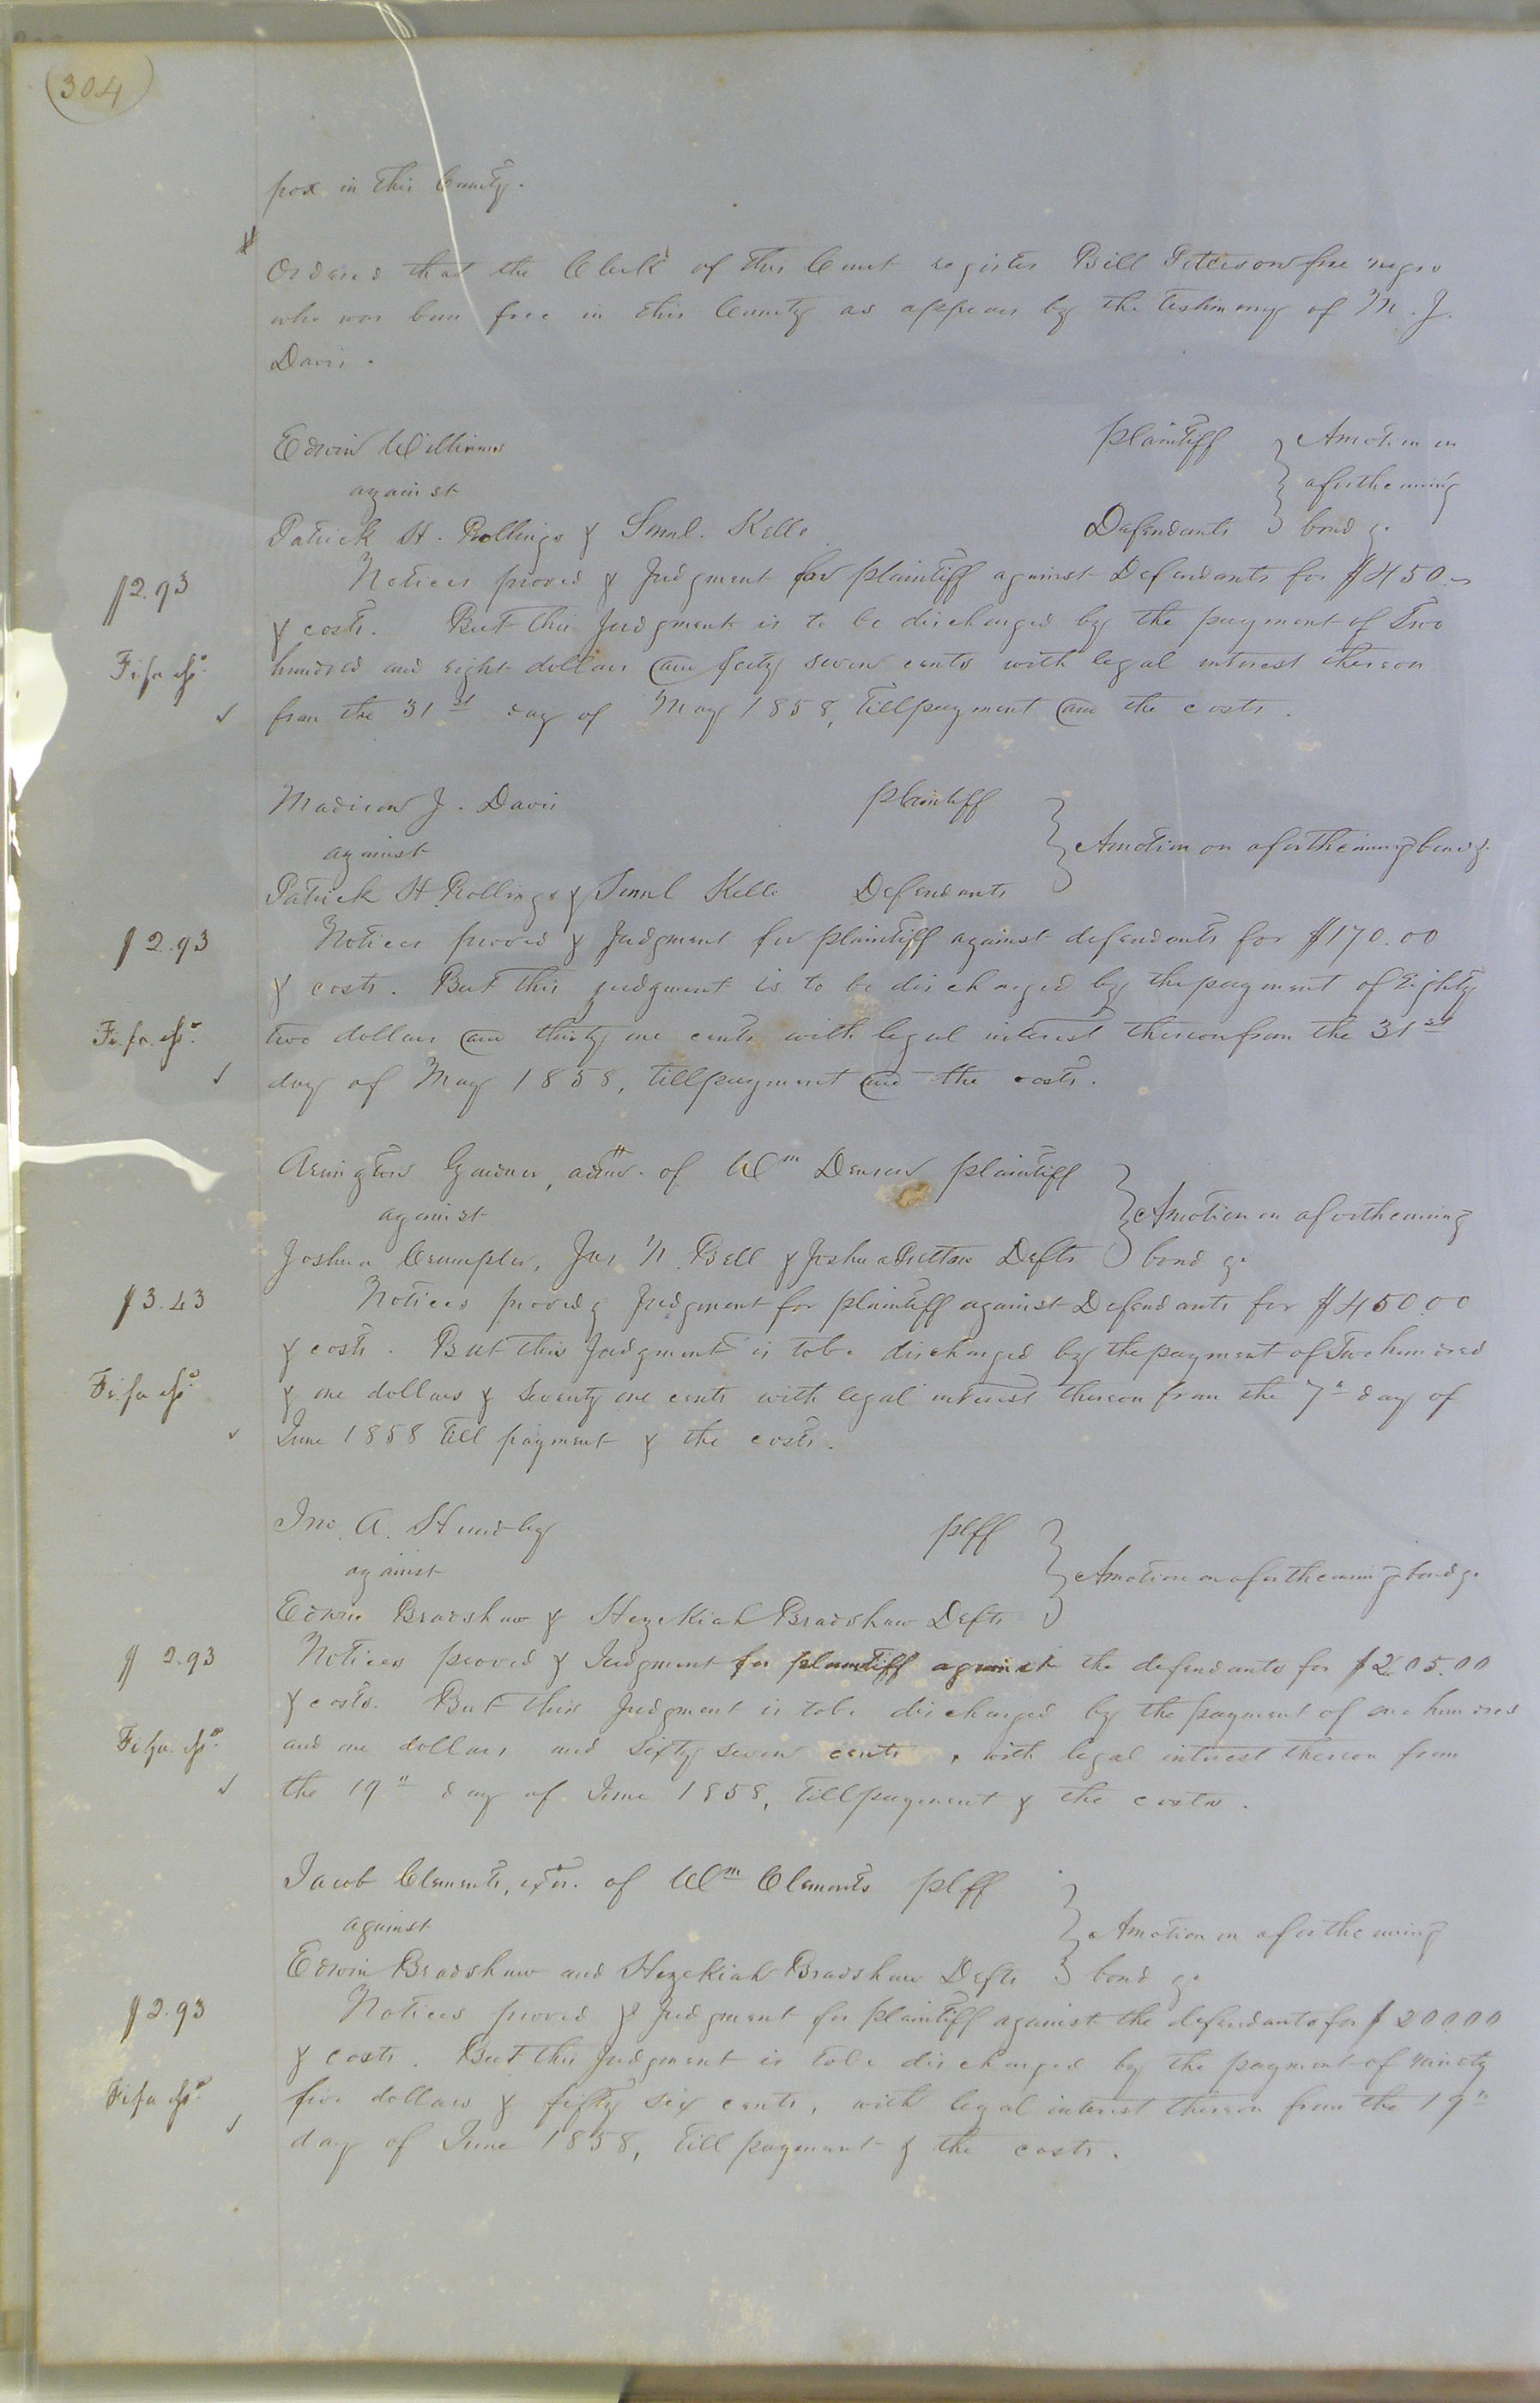 304
pox in this County.
Ordered that the Clerk of this Court register Bill Peterson free negro
who was born free in this County as appears by the testimony of M. J.
Davis.
Edwin Williams plaintiff A motion on
against a forthcoming
Patrick H. Rollings & Saml. Kello Defendants bond &c
$2.93 Notices proved & Judgment for plaintiff against Defendants for $450.
& costs. But this Judgment is to be discharged by the payment of Two
Fi fa hundred and eight dollars and forty seven cents with legal interest thereon
from the 31st day of May 1858, till payment and the costs.
Madison J. Davis plaintiff
against A motion on a forthcoming bond &c
Patrick H Rollings & Saml Kello Defendants
$2.93 Notices proved & Judgment for plaintiff against defendants for $170.00
& costs. But this judgment is to be discharged by the payment of Eighty
Fi. fa. two dollars and thirty one cents with legal interest thereon from the 31st
day of May 1858, till payment and the costs.
Arington Gardner, of Wm Denson plaintiff
against A motion on a forthcoming
Joshua Crumpler, Jas N. Bell & Joshua Defts bond &c
$3.43 Notices proved & Judgment for plaintiff against Defendants for $450.00
& costs. But this Judgment is to be discharged by the payment of Two hundred
Fi fa & one dollars & seventy one cents with legal interest thereon from the 7th day of
June 1858 till payment & the costs.
Jno. A. Hundley plff
against A motion on a forthcoming bond &c
Edwin Bradshaw & Hezekiah Bradshaw Defts
$2.93 Notices proved & Judgment for plaintiff against the defendants for $205.00
& costs. But this Judgment is to be discharged by the payment of one hundred
Fi fa. and one dollars and sixty seven cents, with legal interest thereon from
the 19" day of June 1858, till payment & the costs.
Jacob Clements, exor. of Wm Clements plff
against A motion on a forthcoming
Edwin Bradshaw and Hezekiah Bradshaw Defts bond &c
$2.93 Notices proved & Judgment for plaintiff against the defendants for $200.00
& costs. But this Judgment is to be discharged by the payment of ninety
Fi fa five dollars & fifty six cents, with legal interest thereon from the 19"
day of June 1858, till payment & the costs.